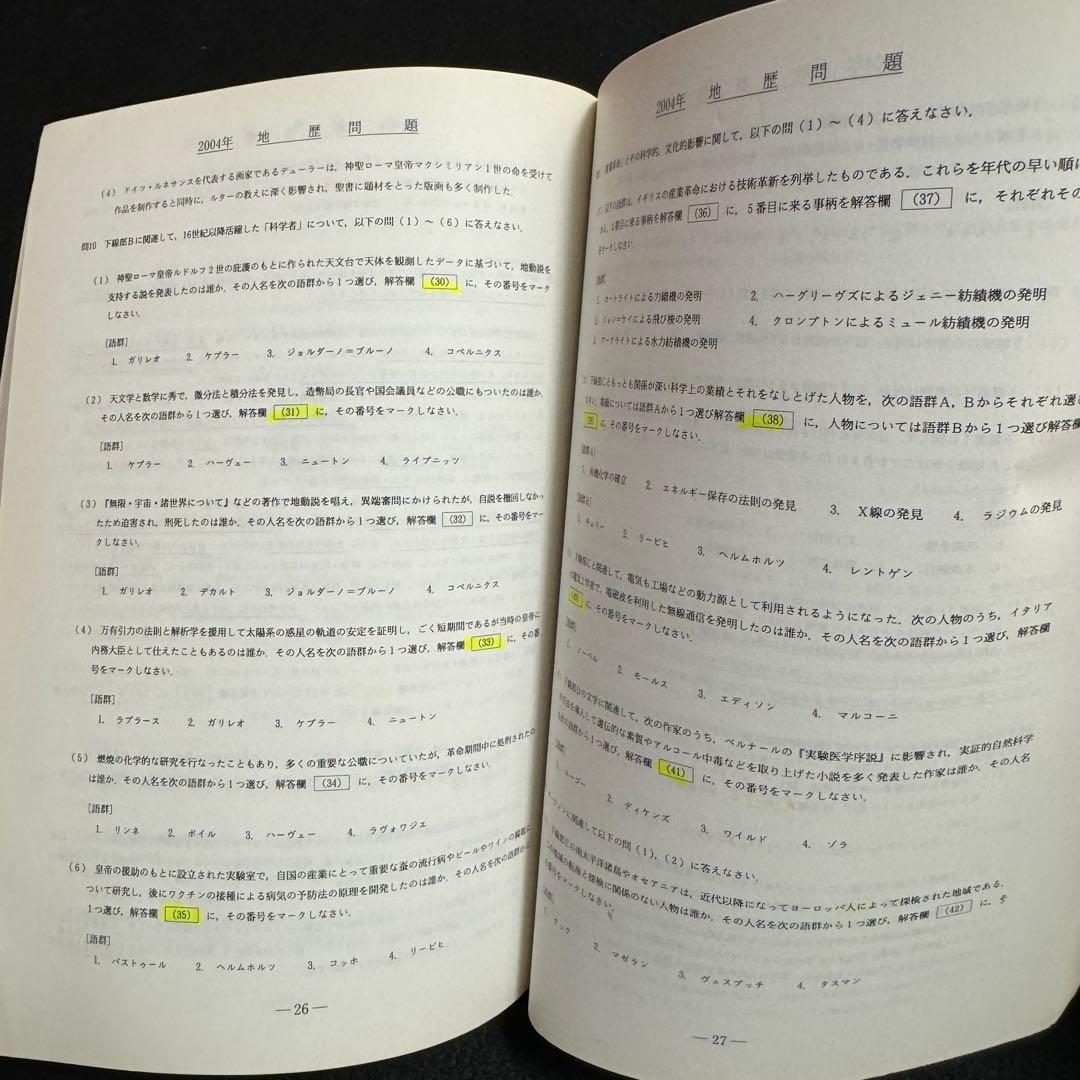 2004年 地 歴 問 題
(4) ドイツ・ルネサンスを代表する画家であるデューラーは，神聖ローマ皇帝マクシミリアン1世の命を受けて
作品を制作すると同時に，ルターの教えに深く影響され，聖書に題材をとった版画も多く制作した．
問10 下線部Bに関連して，16世紀以降活躍した「科学者」について，以下の問（1）～（6）に答えなさい．
(1) 神聖ローマ皇帝ルドルフ2世の庇護のもとに作られた天文台で天体を観測したデータに基づいて，地動説を
支持する説を発表したのは誰か．その人名を次の語群から1つ選び，解答欄 (30) に，その番号をマーク
しなさい．
[語群]
1. ガリレオ 2. ケプラー 3. ジョルダーノ＝ブルーノ 4. コペルニクス
(2) 天文学と数学に秀で，微分法と積分法を発見し，造幣局の長官や国会議員などの公職にもついたのは誰か．
その人名を次の語群から1つ選び，解答欄 (31) に，その番号をマークしなさい．
[語群]
1. ケプラー 2. ハーヴェー 3. ニュートン 4. ライプニッツ
(3) 『無限・宇宙・諸世界について』などの著作で地動説を唱え，異端審問にかけられたが，自説を撤回しなかっ
たため迫害され，刑死したのは誰か．その人名を次の語群から1つ選び，解答欄 (32) に，その番号をマー
クしなさい．
[語群]
1. ガリレオ 2. デカルト 3. ジョルダーノ＝ブルーノ 4. コペルニクス
(4) 万有引力の法則と解析学を援用して太陽系の惑星の軌道の安定を証明し，ごく短期間であるが当時の皇帝に
内務大臣として仕えたこともあるのは誰か．その人名を次の語群から1つ選び，解答欄 (33) に，その番
号をマークしなさい．
[語群]
1. ラプラース 2. ガリレオ 3. ケプラー 4. ニュートン
(5) 燃焼の化学的な研究を行なったこともあり，多くの重要な公職についていたが，革命期間中に処刑されたの
は誰か．その人名を次の語群から1つ選び，解答欄 (34) に，その番号をマークしなさい．
[語群]
1. リンネ 2. ボイル 3. ハーヴェー 4. ラヴォワジェ
(6) 皇帝の援助のもとに設立された実験室で，自国の産業にとって重要な蚕の流行病やビールやワインの腐敗に
ついて研究し，後にワクチンの接種による病気の予防法の原理を開発したのは誰か．その人名を次の語群から
1つ選び，解答欄 (35) に，その番号をマークしなさい．
[語群]
1. パストゥール 2. ヘルムホルツ 3. コッホ 4. リービヒ
—26—
2004年 地 歴 問 題
とその科学的，文化的影響に関して，以下の問（1）～（4）に答えなさい．
以下の語群は，イギリスの産業革命における技術革新を列挙したものである．これらを年代の早い順に
2番目に来る事柄を解答欄 (36) に，5番目に来る事柄を解答欄 (37) に，それぞれその
をマークしなさい．
1. カートライトによる力織機の発明 2. ハーグリーヴズによるジェニー紡績機の発明
3. ジョン＝ケイによる飛び梭の発明 4. クロンプトンによるミュール紡績機の発明
5. アークライトによる水力紡績機の発明
下線部Cともっとも関係が深い科学上の業績とそれをなしとげた人物を，次の語群A，Bからそれぞれ選び
なさい．業績については語群Aから1つ選び解答欄 (38) に，人物については語群Bから1つ選び解答欄
(39) に，その番号をマークしなさい．
[語群A]
1. 有機化学の確立 2. エネルギー保存の法則の発見 3. X線の発見 4. ラジウムの発見
[語群B]
1. キュリー 2. リービヒ 3. ヘルムホルツ 4. レントゲン
下線部Cと関連して，電気も工場などの動力源として利用されるようになった．次の人物のうち，イタリア
の電気工学者で，電磁波を利用した無線通信を発明したのは誰か．その人名を次の語群から1つ選び，解答欄
(40) に，その番号をマークしなさい．
[語群]
1. ノーベル 2. モールス 3. エディソン 4. マルコーニ
下線部Dの文学に関連して，次の作家のうち，ベルナールの『実験医学序説』に影響され，実証的自然科学
の方法を導入して遺伝的な素質やアルコール中毒などを取り上げた小説を多く発表した作家は誰か．その人名
を次の語群から1つ選び，解答欄 (41) に，その番号をマークしなさい．
[語群]
1. ユーゴー 2. ディケンズ 3. ワイルド 4. ゾラ
に関連して以下の問（1），（2）に答えなさい．
の南太平洋諸島やオセアニアは，近代以降になってヨーロッパ人によって探検された地域である．
この地域の航海と探検に関係のない人物は誰か．その人名を次の語群から1つ選び，解答欄 (42) に，そ
の番号をマークしなさい．
[語群]
1. クック 2. マゼラン 3. ヴェスプッチ 4. タスマン
—27—